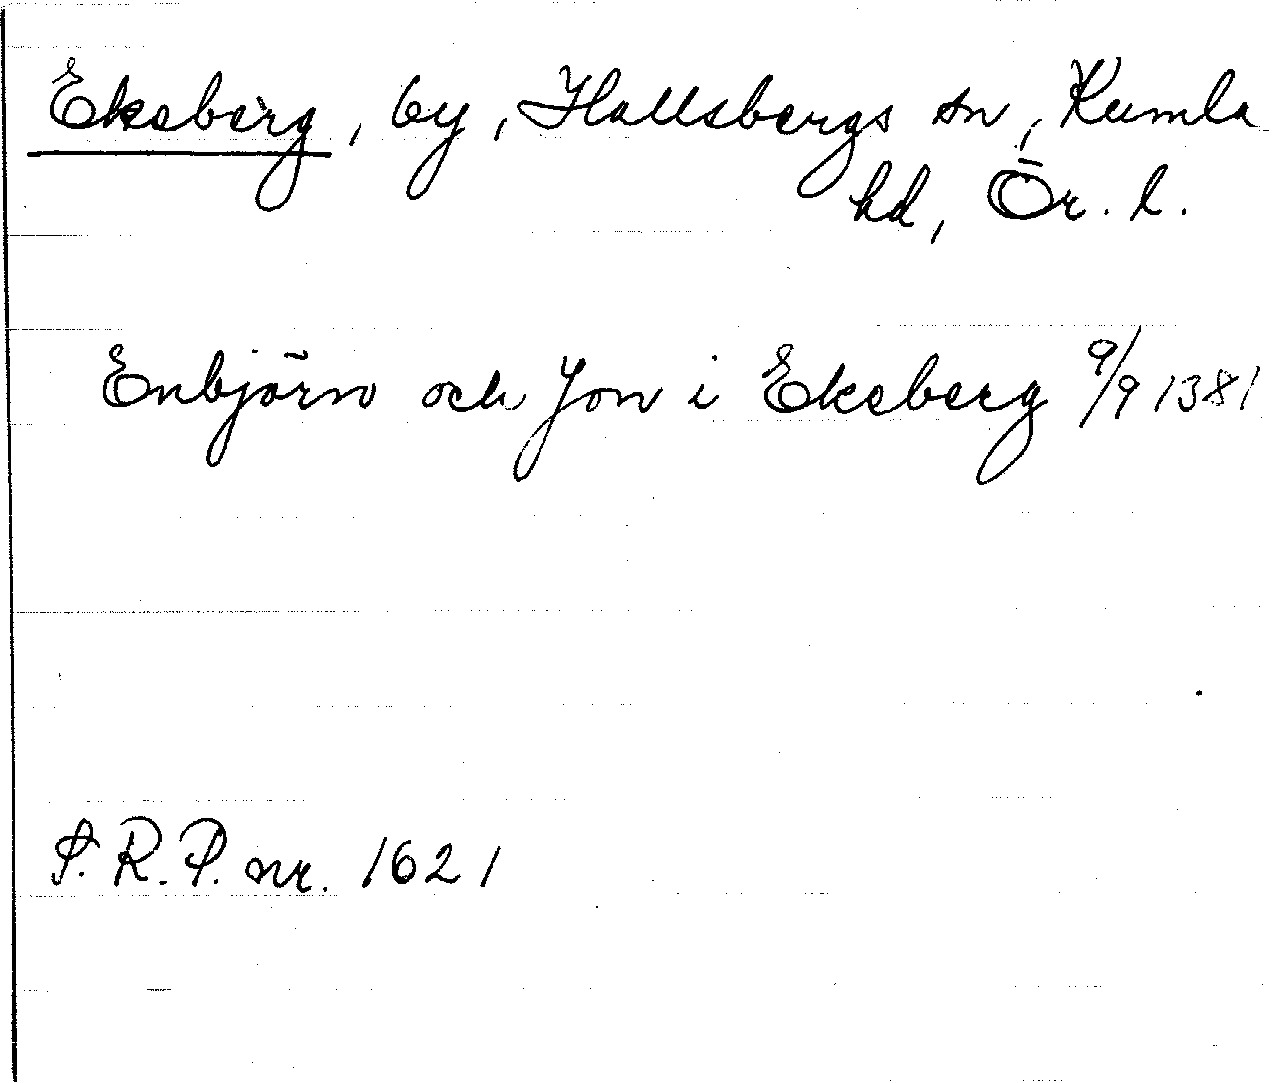 Eksberg, by, Hallsbergs sn, Kumla
hd, Ör. l.
Enbjörn och Jon i Eksberg 9/9 1381
S.R.P. nr. 1621